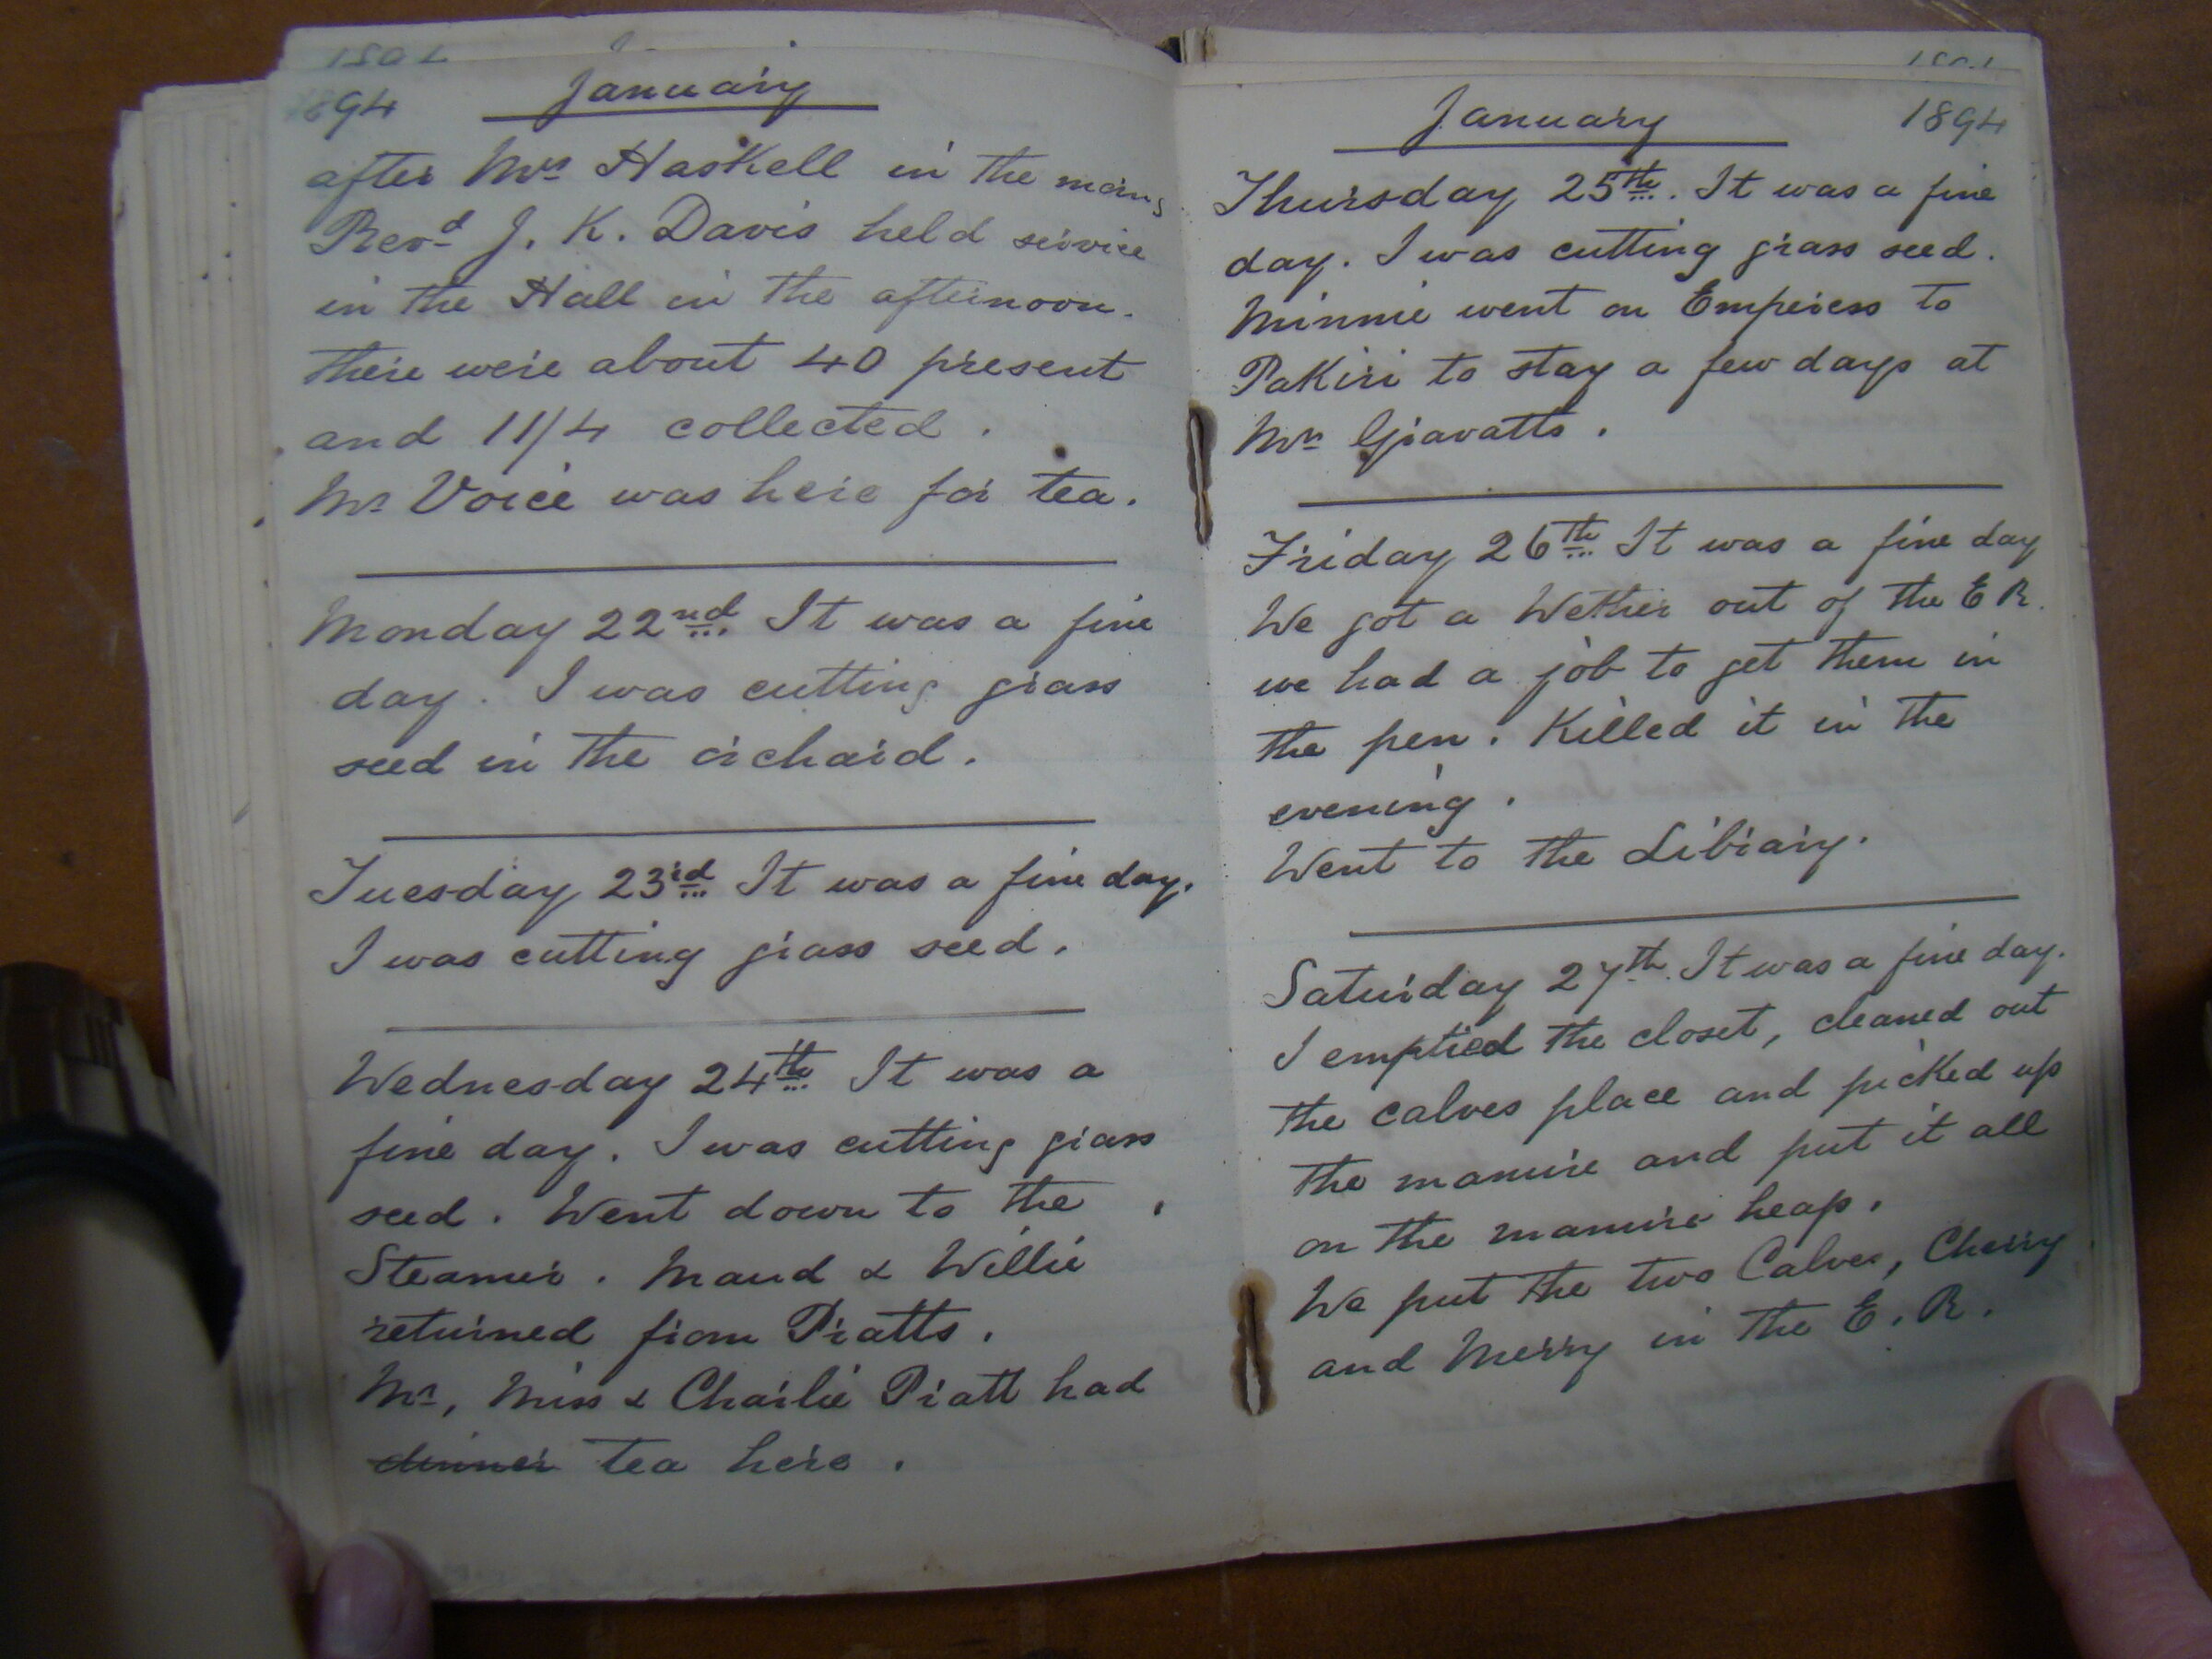 1894 January
after Mrs Haskell in the morng
Revd J. K. Davis held service
in the Hall in the afternoon.
there were about 40 present
and 11/4 collected.
Mr Voice was here for tea.
Monday 22nd. It was a fine
day. I was cutting grass
seed in the orchard.
Tuesday 23rd It was a fine day.
I was cutting grass seed.
Wednesday 24th It was a
fine day. I was cutting grass
seed. Went down to the
Steamer. Maud & Willie
returned from Pratts.
Mr, Miss & Charlie Pratt had
dinner tea here.
January 1894
Thursday 25th. It was a fine
day. I was cutting grass seed.
Minnie went on Emperess to
Pakiri to stay a few days at
Mrs Gravatts.
Friday 26th It was a fine day
We got a Wether out of the E R.
we had a job to get them in
the pen. Killed it in the
evening.
Went to the Library.
Saturday 27th. It was a fine day.
I emptied the closet, cleaned out
the calves place and picked up
the manure and put it all
on the manure heap.
We put the two Calves, Cherry
and Merry in the E. R.